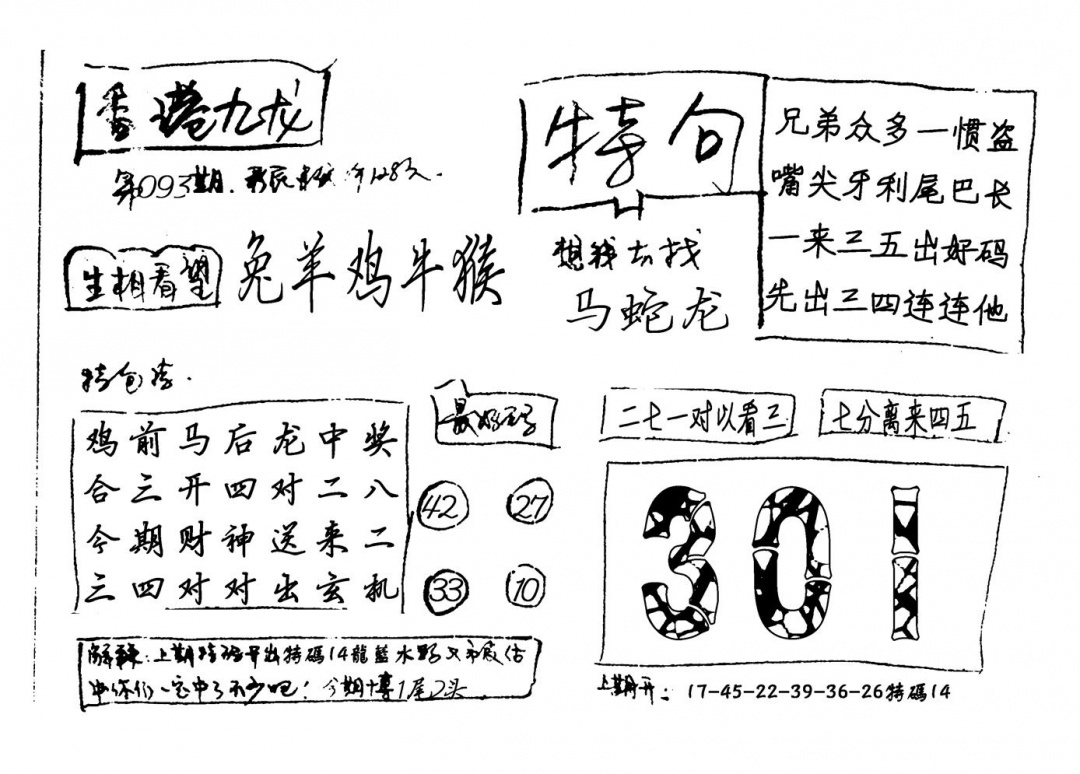 香港九龙
第093期.
生相看望
兔羊鸡牛猴
特句
想我去找
马蛇龙
兄弟众多一惯盗
嘴尖牙利尾巴长
一来三五出好码
先出三四连连他
鸡前马后龙中奖
合三开四对二八
今期财神送来二
三四对对出玄机
最好码
42 27
33 10
二七一对以看三
七分离来四五
301
解釋:上期特码开出特碼14龍藍水
中你们一定中了不少吧!今期博1尾2头
上期开:17-45-22-39-36-26特碼14